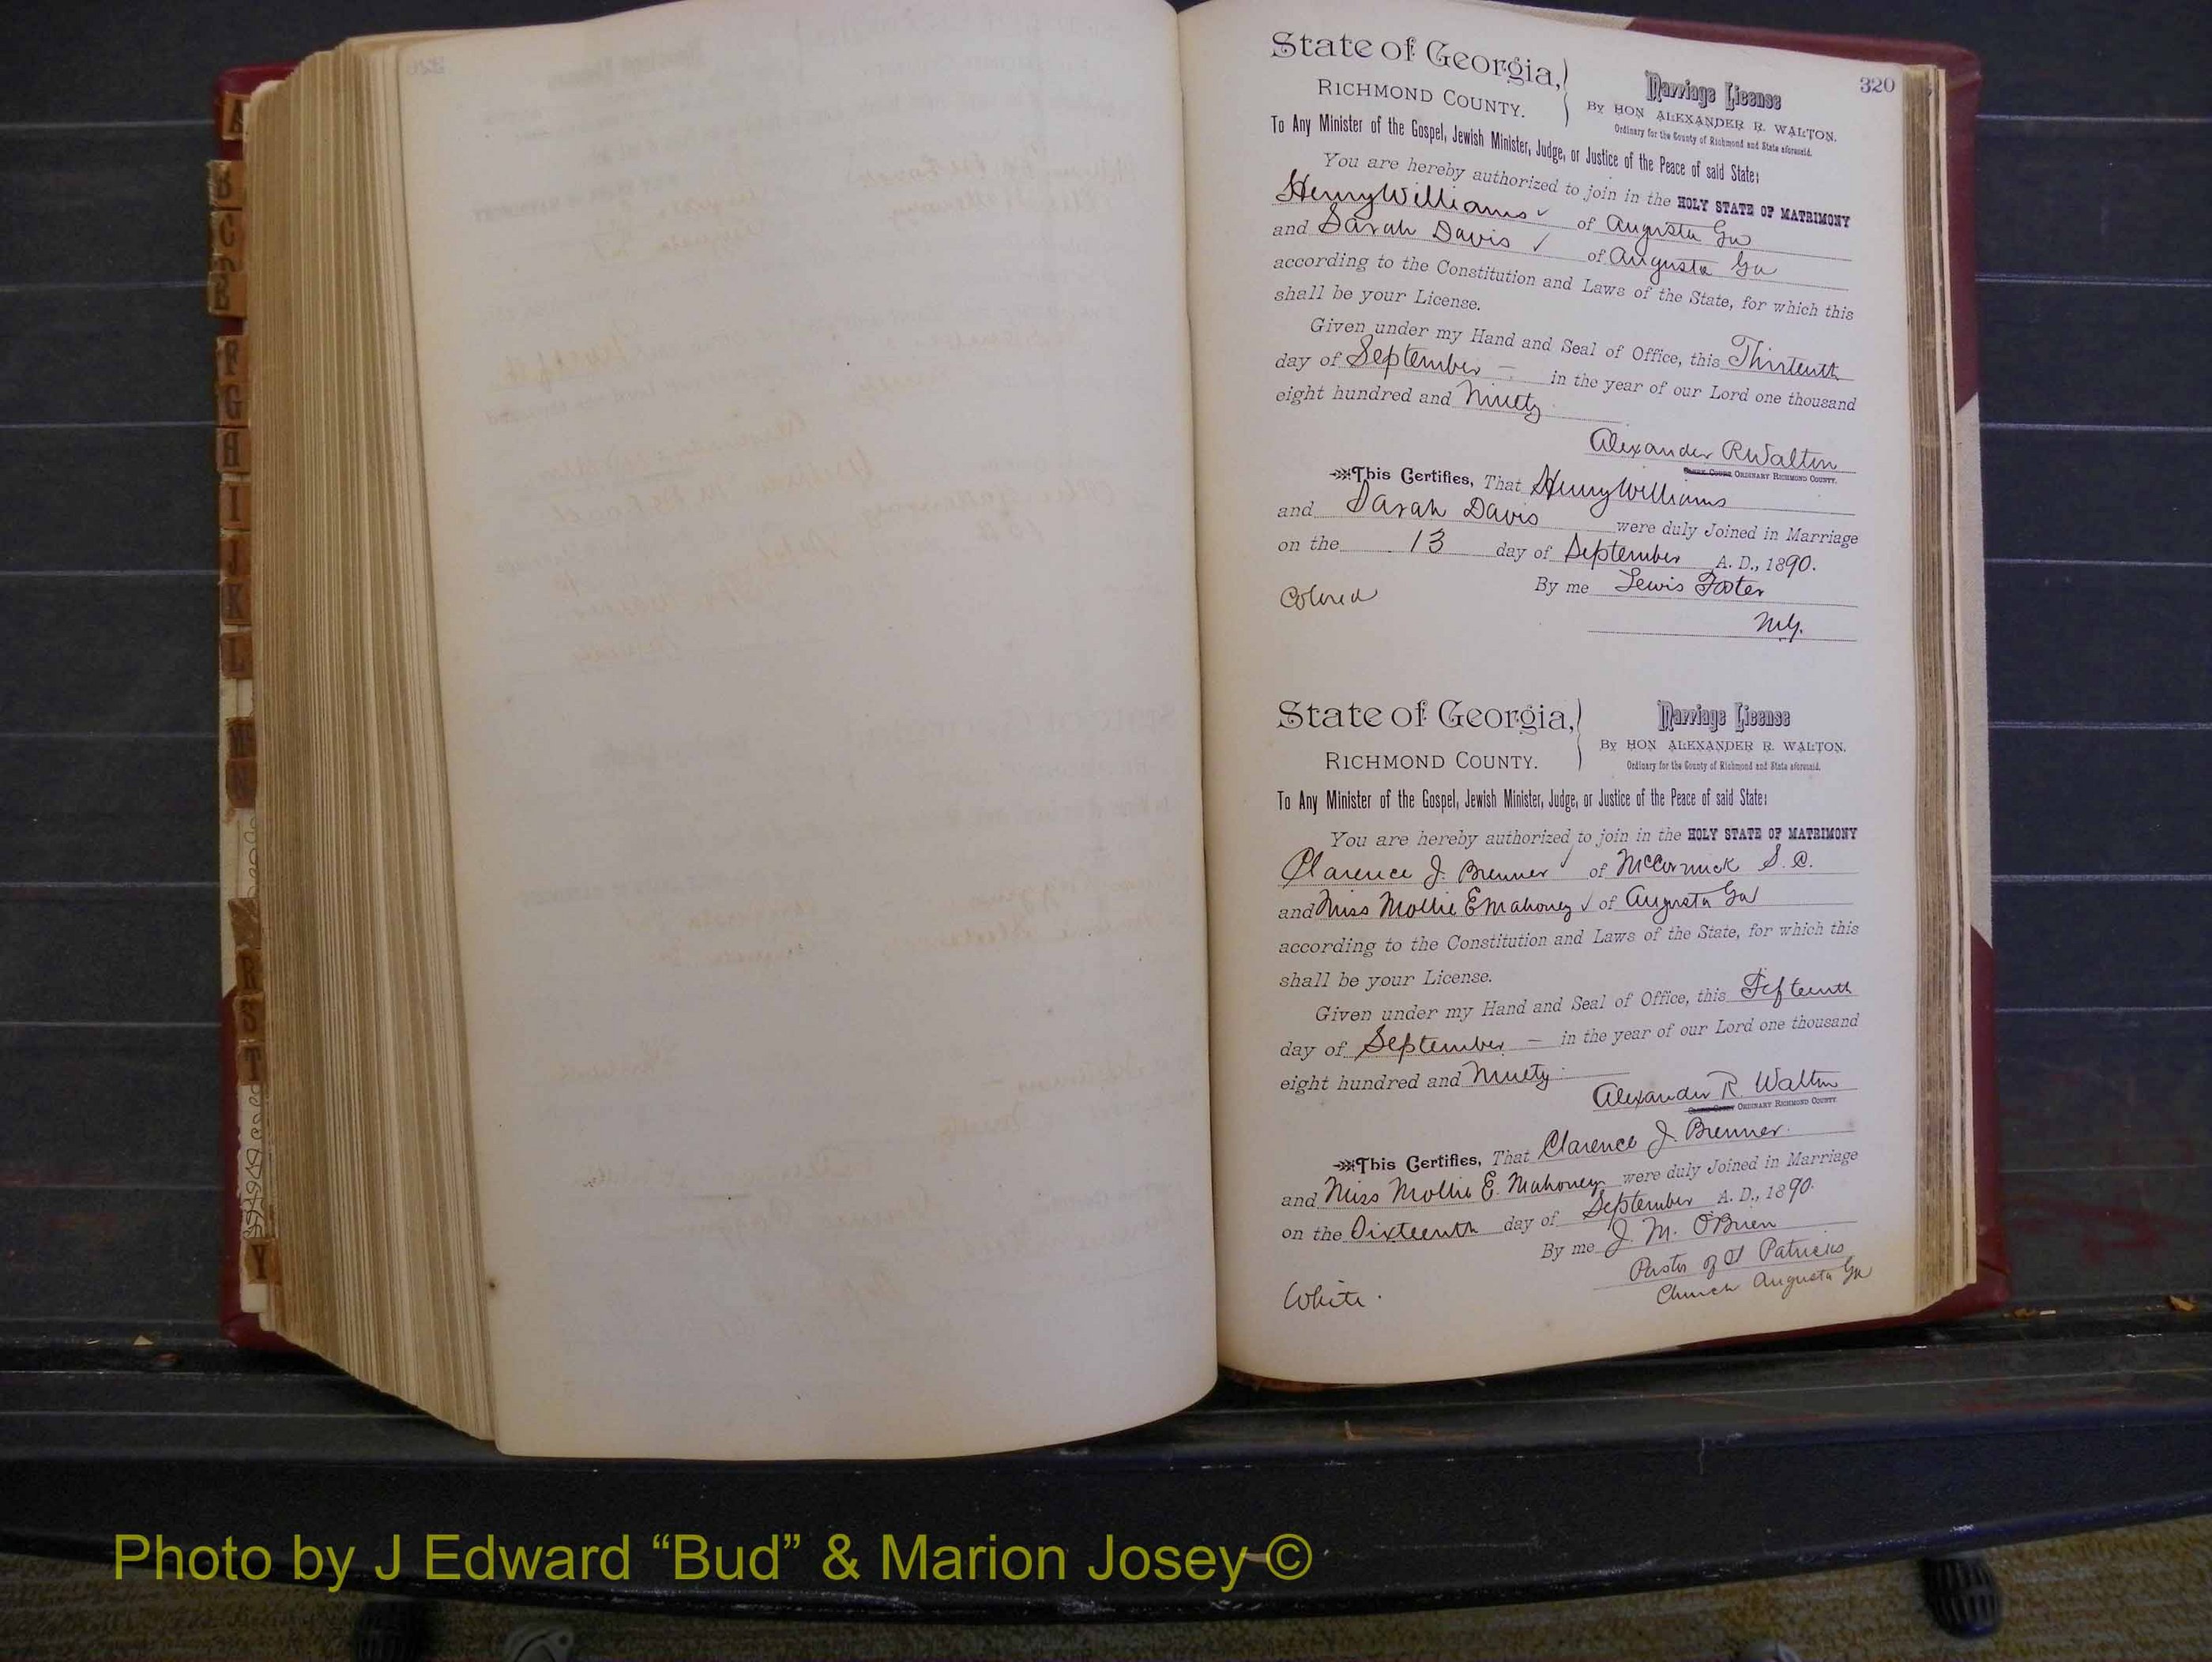 320
State of Georgia,
RICHMOND COUNTY.
Marriage License
By HON ALEXANDER R. WALTON.
Ordinary for the County of Richmond and State aforesaid.
To Any Minister of the Gospel, Jewish Minister, Judge, or Justice of the Peace of said State:
You are hereby authorized to join in the HOLY STATE OF MATRIMONY
Henry Williams ✓ of Augusta Ga
and Sarah Davis ✓ of Augusta Ga
according to the Constitution and Laws of the State, for which this
shall be your License.
Given under my Hand and Seal of Office, this Thirteenth
day of September — in the year of our Lord one thousand
eight hundred and Ninety
Alexander R Walton
ORDINARY RICHMOND COUNTY.
This Certifies, That Henry Williams
and Sarah Davis were duly Joined in Marriage
on the 13 day of September A. D., 1890.
By me Lewis Foster
Colored
M.G.
State of Georgia,
RICHMOND COUNTY.
Marriage License
By HON ALEXANDER R. WALTON.
Ordinary for the County of Richmond and State aforesaid.
To Any Minister of the Gospel, Jewish Minister, Judge, or Justice of the Peace of said State:
You are hereby authorized to join in the HOLY STATE OF MATRIMONY
Clarence J. Brenner ✓ of McCormick S. C.
and Miss Mollie E Mahoney ✓ of Augusta Ga
according to the Constitution and Laws of the State, for which this
shall be your License.
Given under my Hand and Seal of Office, this Fifteenth
day of September — in the year of our Lord one thousand
eight hundred and Ninety
Alexander R. Walton
ORDINARY RICHMOND COUNTY
This Certifies, That Clarence J. Brenner.
and Miss Mollie E. Mahoney were duly Joined in Marriage
on the Sixteenth day of September A. D., 1890.
By me J. M. O'Brien
Pastor of St Patricks
Church Augusta Ga
White.
A
B
C
D
E
F
G
H
I
J
K
L
Mc
N
R
S
T
Y
Photo by J Edward “Bud” & Marion Josey ©